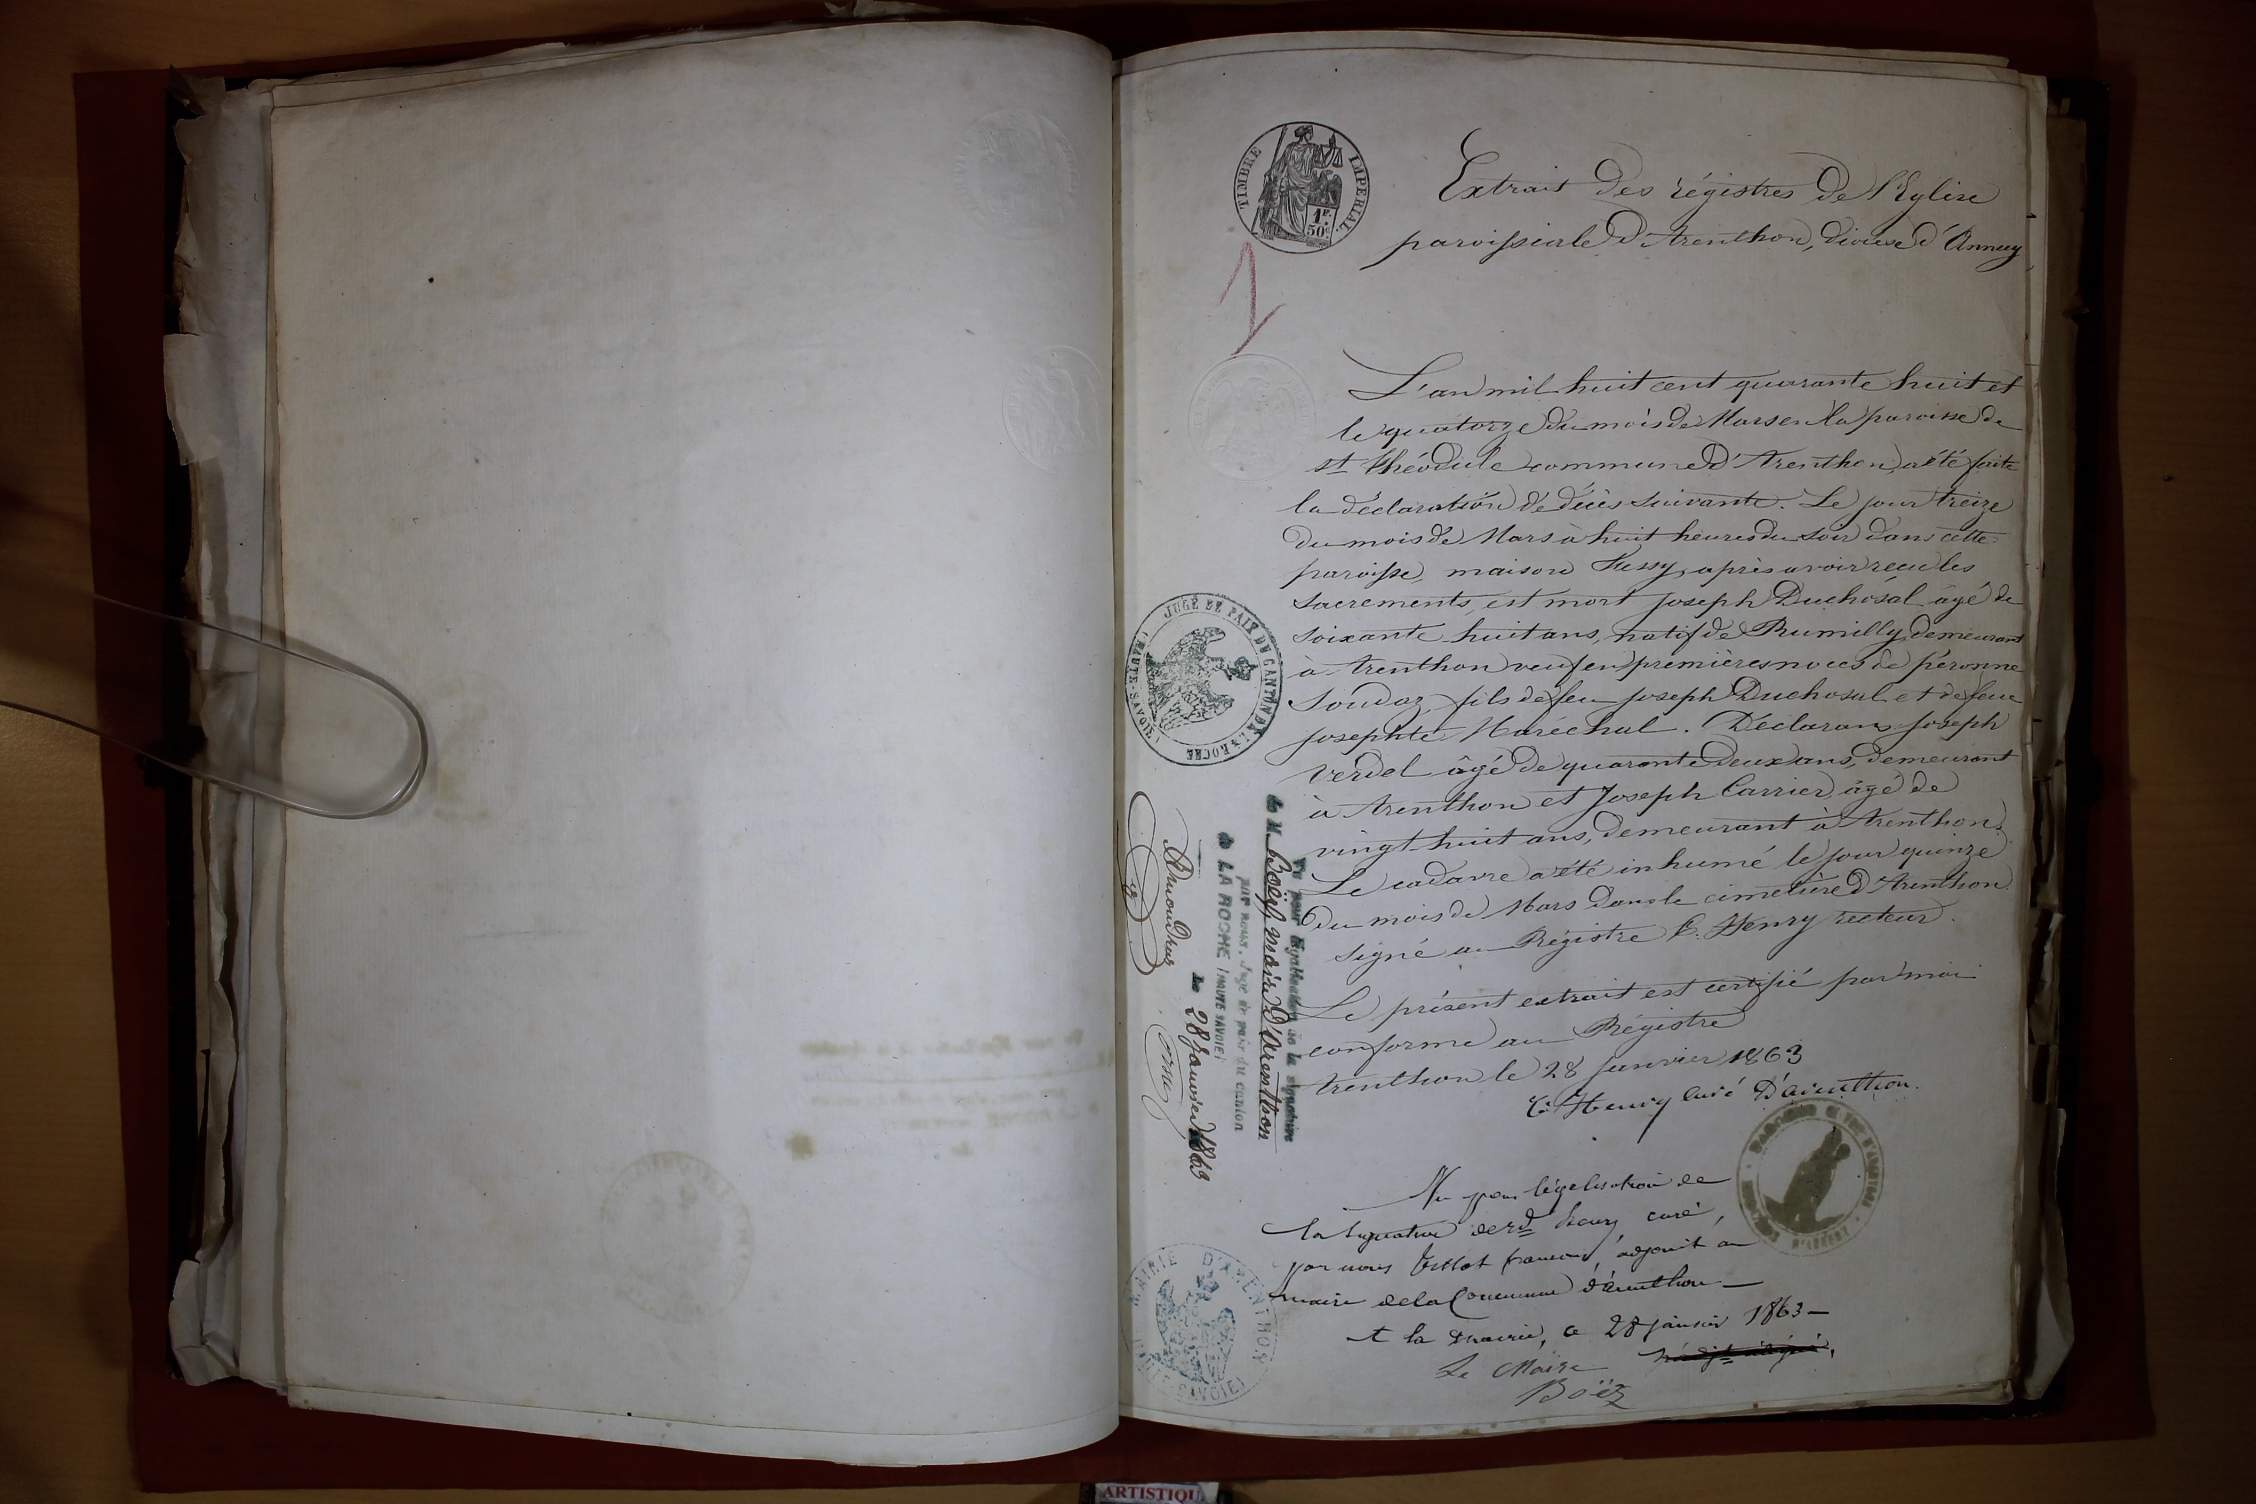 TIMBRE IMPERIAL
1F.
50c.
Extrait des régistres de l'Eglise
paroissiale d'Arenthon, diocèse d'Annecy
1
L'an mil huit cent quarante huit et
le quatorze du mois de Mars en la paroisse de
st théodule commune d'Arenthon, a été faite
la déclaration de décès suivante. Le jour treize
du mois de Mars à huit heures du soir dans cette
paroisse, maison Fessy, après avoir reçu les
sacrements, est mort Joseph Duchosal âgé de
soixante huit ans, natif de Rumilly, demeurant
à Arenthon veuf en premières noces de Péronne
Soudaz, fils de feu Joseph Duchosal et de feue
Josephte Maréchal. Déclarans Joseph
Verdel âgé de quarante deux ans, demeurant
à Arenthon et Joseph Carrier, âgé de
vingt huit ans, demeurant à Arenthon.
Le cadavre a été inhumé le jour quinze
du mois de Mars dans le cimetière d'Arenthon.
signé au Régistre C. Henry recteur.
Le présent extrait est certifié par moi
conforme au Régistre
Arenthon le 28 Janvier 1863
C. Henry curé d'arenthon.
Vu pour légalisation de
la signature de rd henry curé,
par nous adjoint au
maire de la Commune d'arenthon
A la mairie, ce 28 janvier 1863
Le Maire
Boëz
JUGE DE PAIX DU CANTON DE LA ROCHE
(HAUTE-SAVOIE)
Vu pour légalisation de la signature
de M. Boëz, maire d'Arenthon
par nous, Juge de paix du canton
de LA ROCHE (HAUTE SAVOIE)
Le 28 Janvier 1863
MAIRIE D'ARENTHON
(HTE SAVOIE)
ARTISTIQU